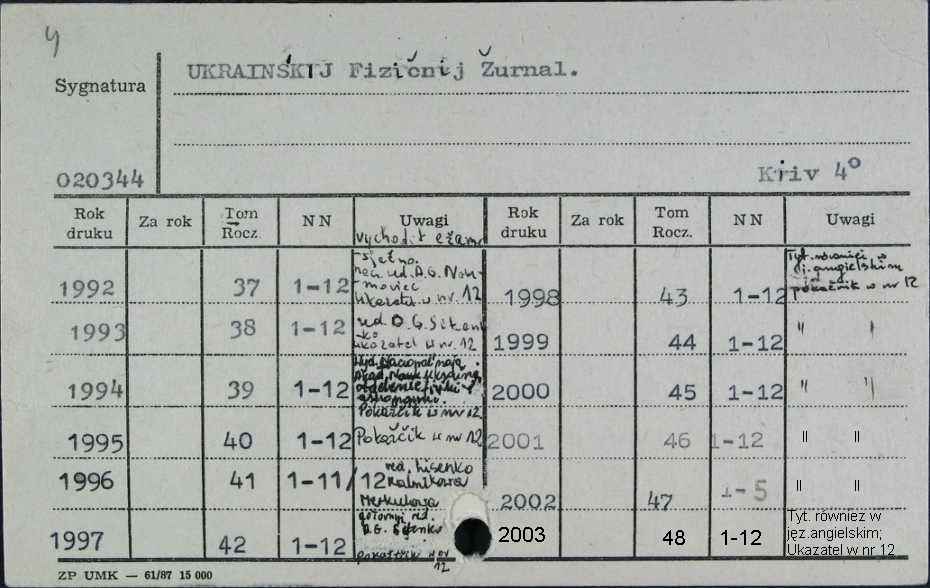 UKRAINŚKIJ Fizičnij Žurnal.
Sygnatura
020344
Kiiv 4°
Rok druku Za rok Tom Rocz. NN Uwagi Rok druku Za rok Tom Rocz. NN Uwagi
vychodit ežeme
-sjačno.
1992 37 1-12 ukazatel w nr. 12
1998 43 1-12 Tyt. również w j. angielskim pokažčik w nr 12
1993 38 1-12 red O.G. ukazatel w nr. 12
1999 44 1-12 " "
1994 39 1-12 Pokažčik w nr 12
2000 45 1-12 " "
1995 40 1-12 Pokažčik w nr 12
2001 46 1-12 " "
1996 41 1-11/12 red. Lisenko
Merkulowa
2002 47 1-5 " "
1997 42 1-12 red.
2003 48 1-12 Tyt. również w
jęz.angielskim;
Ukazatel w nr 12
ZP UMK — 61/87 15 000